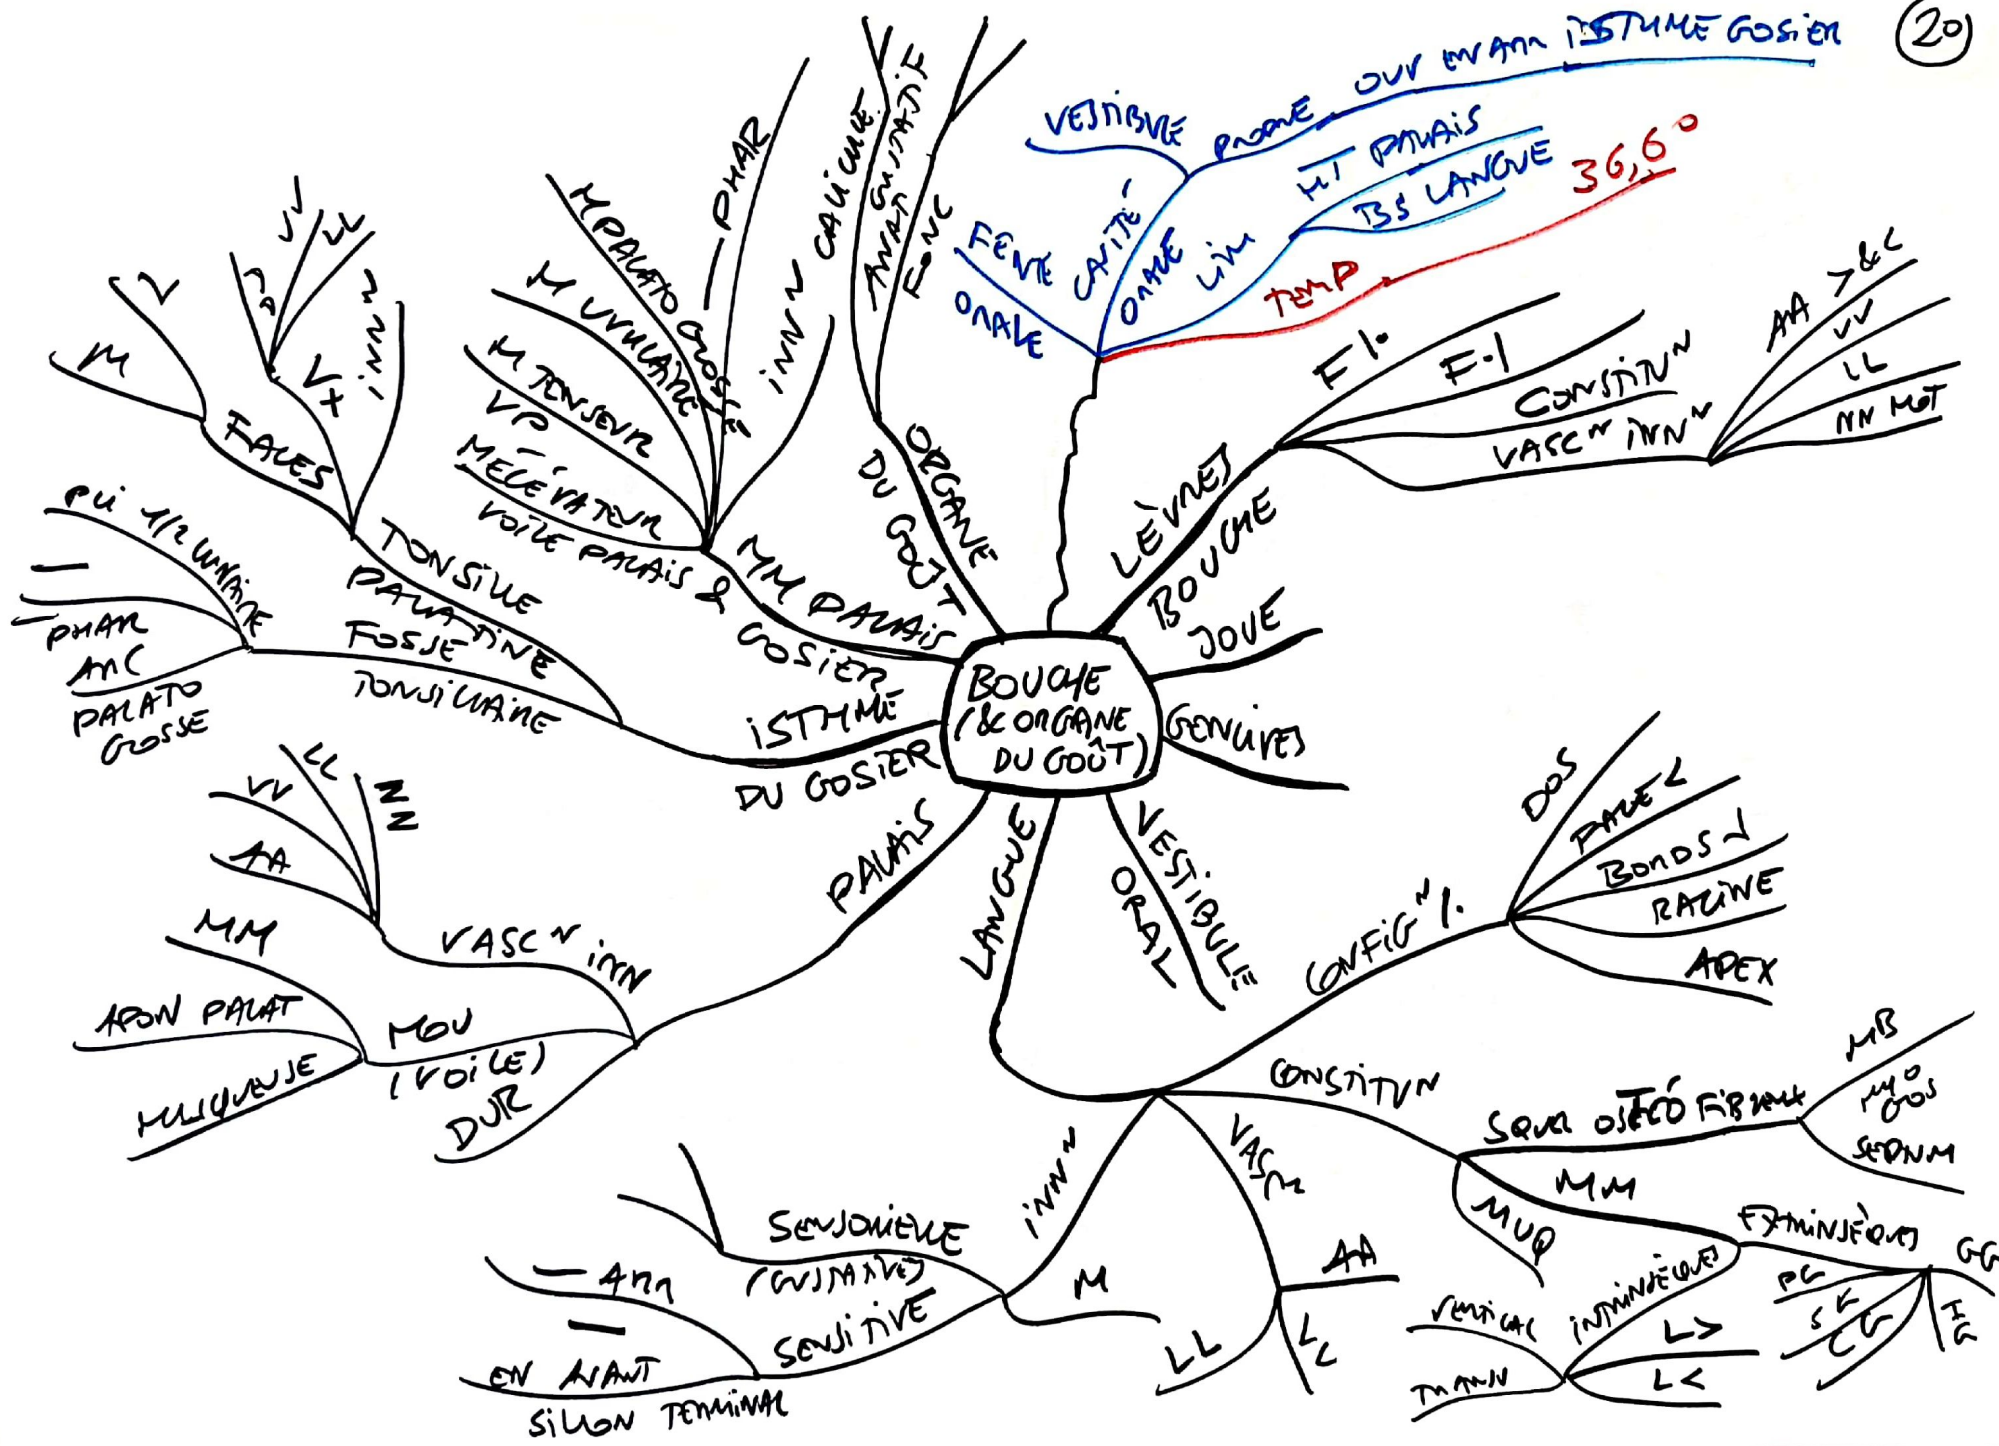 20
BOUCHE
(& ORGANE
DU GOÛT)
FENTE
ORALE
CAVITÉ
ORALE
VESTIBULE
PROPRE
OUV EN ARR ISTHME GOSIER
LIM
HT PALAIS
BS LANGUE
TEMP
36,6°
LÈVRES
BOUCHE
F
F
CONSTITU N
VASC N INN N
AA > & <
VV
LL
NN MOT
JOUE
GENCIVES
VESTIBULE
ORAL
LANGUE
CONFIG N
DOS
FACE <
BORDS
RACINE
APEX
CONSTITUN
SQUEL OSTÉO FIBREUX
MB
GOS
SEPTUM
MM
MUQ
EXTRINSÈQUES
GG
PG
CG
INTRINSÈQUES
VERTICAL
TRANSV
L >
L <
VASC
AA
LL
INN N
M
SENSORIELLE
(GUSTATIVE)
SENSITIVE
ARR
EN AVANT
SILLON TERMINAL
PALAIS
VASC N INN
AA
VV
LL
NN
MOU
(VOILE)
MM
APON PALAT
MUQUEUSE
DUR
ISTHME
DU GOSIER
TONSILLE
PALATINE
FACES
M
VX
VV
LL
INN N
FOSSE
TONSILLAIRE
PLI 1/2 LUNAIRE
PHAR
ARC
PALATO
GLOSSE
MM PALAIS
GOSIER
M ÉLÉVATEUR
VOILE PALAIS &
M TENSEUR
VP
M UVULAIRE
M PALATO GLOSSE
PHAR
INN N
ORGANE
DU GOÛT
CALICULE
GUSTATIF
ANAT
FONC